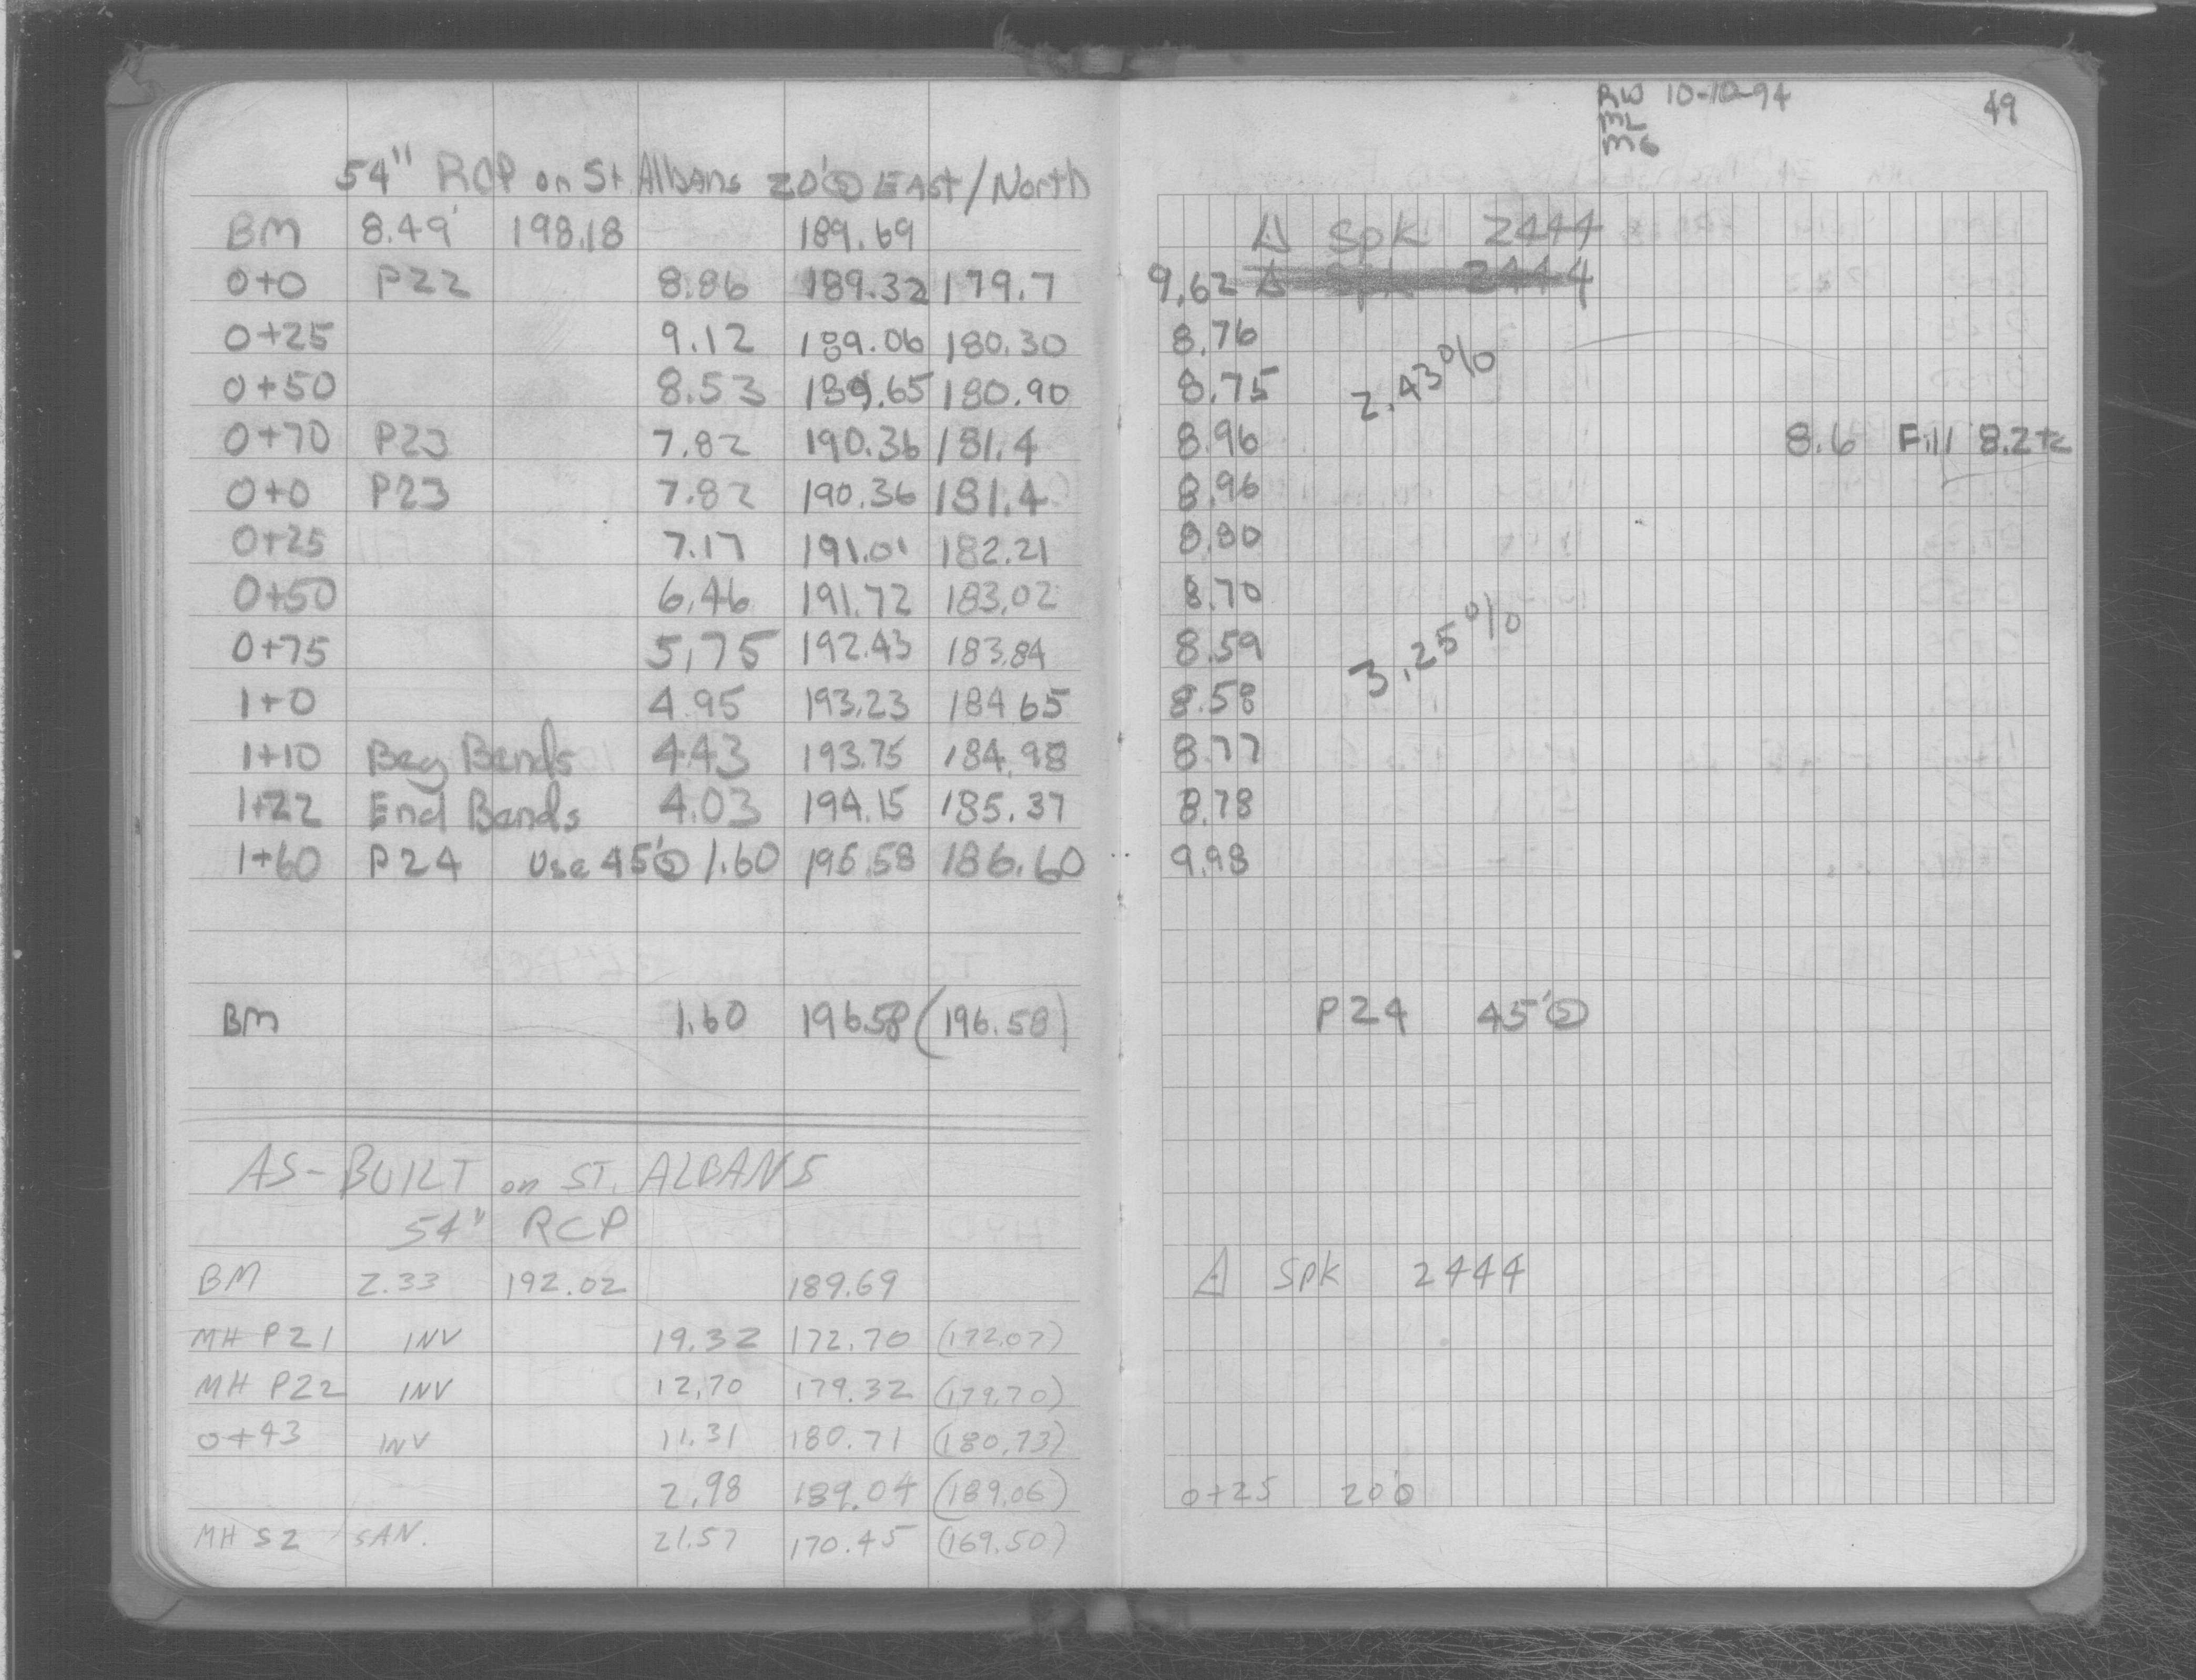 RW 10-10-94
ML
MG
49
54" RCP on St. Albans 20'Ⓢ East/North
BM 8.49' 198.18 189.69 △ Spk 2444
0+0 P22 8.86 189.32 179.7 9.62 △ Spk 2444
0+25 9.12 189.06 180.30 8.76
0+50 8.53 189.65 180.90 8.75 2.43%
0+70 P23 7.82 190.36 181.4 8.96 8.6 Fill 8.2
0+0 P23 7.82 190.36 181.4 8.96
0+25 7.17 191.01 182.21 8.80
0+50 6.46 191.72 183.02 8.70
0+75 5.75 192.43 183.84 8.59 3.25%
1+0 4.95 193.23 184.65 8.58
1+10 Beg Bends 4.43 193.75 184.98 8.77
1+22 End Bends 4.03 194.15 185.37 8.78
1+60 P24 Use 45'Ⓢ 1.60 196.58 186.60 9.98
BM 1.60 196.58 (196.58) P24 45'Ⓢ
AS-BUILT on ST. ALBANS
54" RCP
BM 2.33 192.02 189.69 △ Spk 2444
MH P21 INV 19.32 172.70 (172.07)
MH P22 INV 12.70 179.32 (179.70)
0+43 INV 11.31 180.71 (180.73)
2.98 189.04 (189.06) 0+25 20'
MH S2 SAN. 21.57 170.45 (169.50)